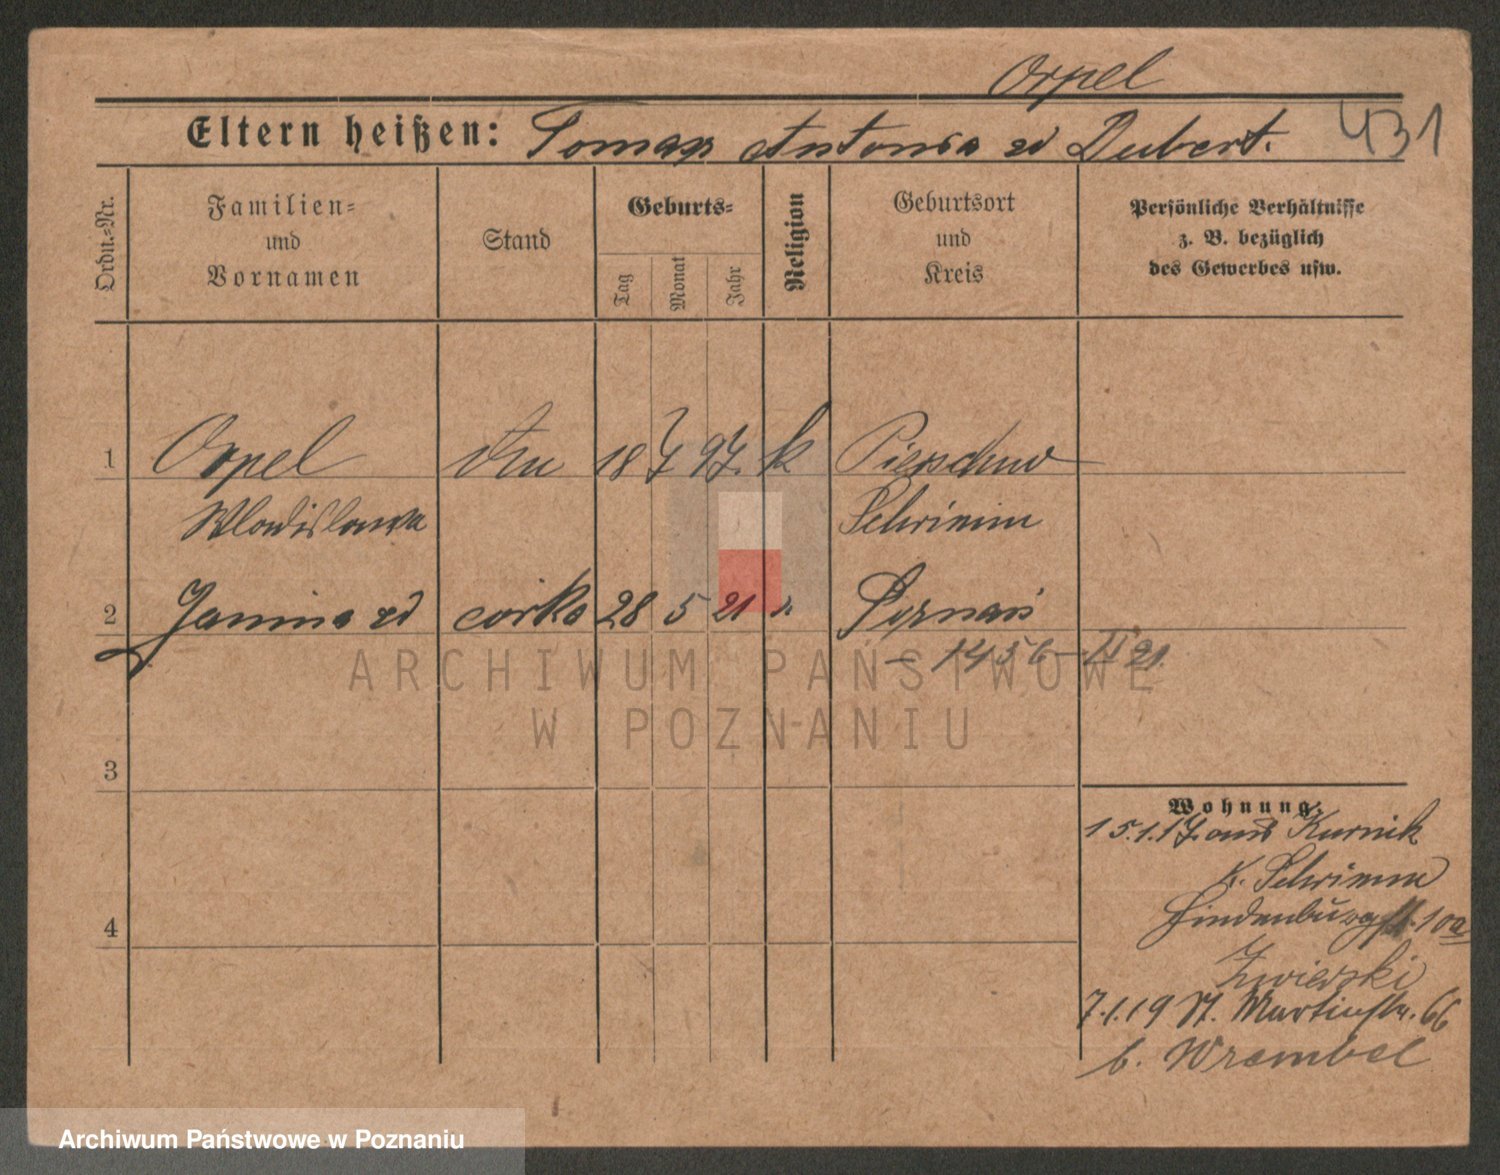 Orpel
431
Eltern heißen: Tomasz Antonia zd Dubert.
Ordn.-Nr.
Familien- und Vornamen
Stand
Geburts-
Tag
Monat
Jahr
Religion
Geburtsort und Kreis
Persönliche Verhältnisse
z. B. bezüglich
des Gewerbes usw.
1 Orpel 18 7 97. k
Wladislawa Schrimm
2 Janina zd córka 28 5 21 " Poznań
- 1456 - II 21.
3
4
Wohnung.
15.1.17. aus Kurnik
K. Schrimm
Hindenburgstr. 10a
Zwierski
7.1.19 St. Martinstr. 66
b. Wrembel
ARCHIWUM PAŃSTWOWE
W POZNANIU
Archiwum Państwowe w Poznaniu